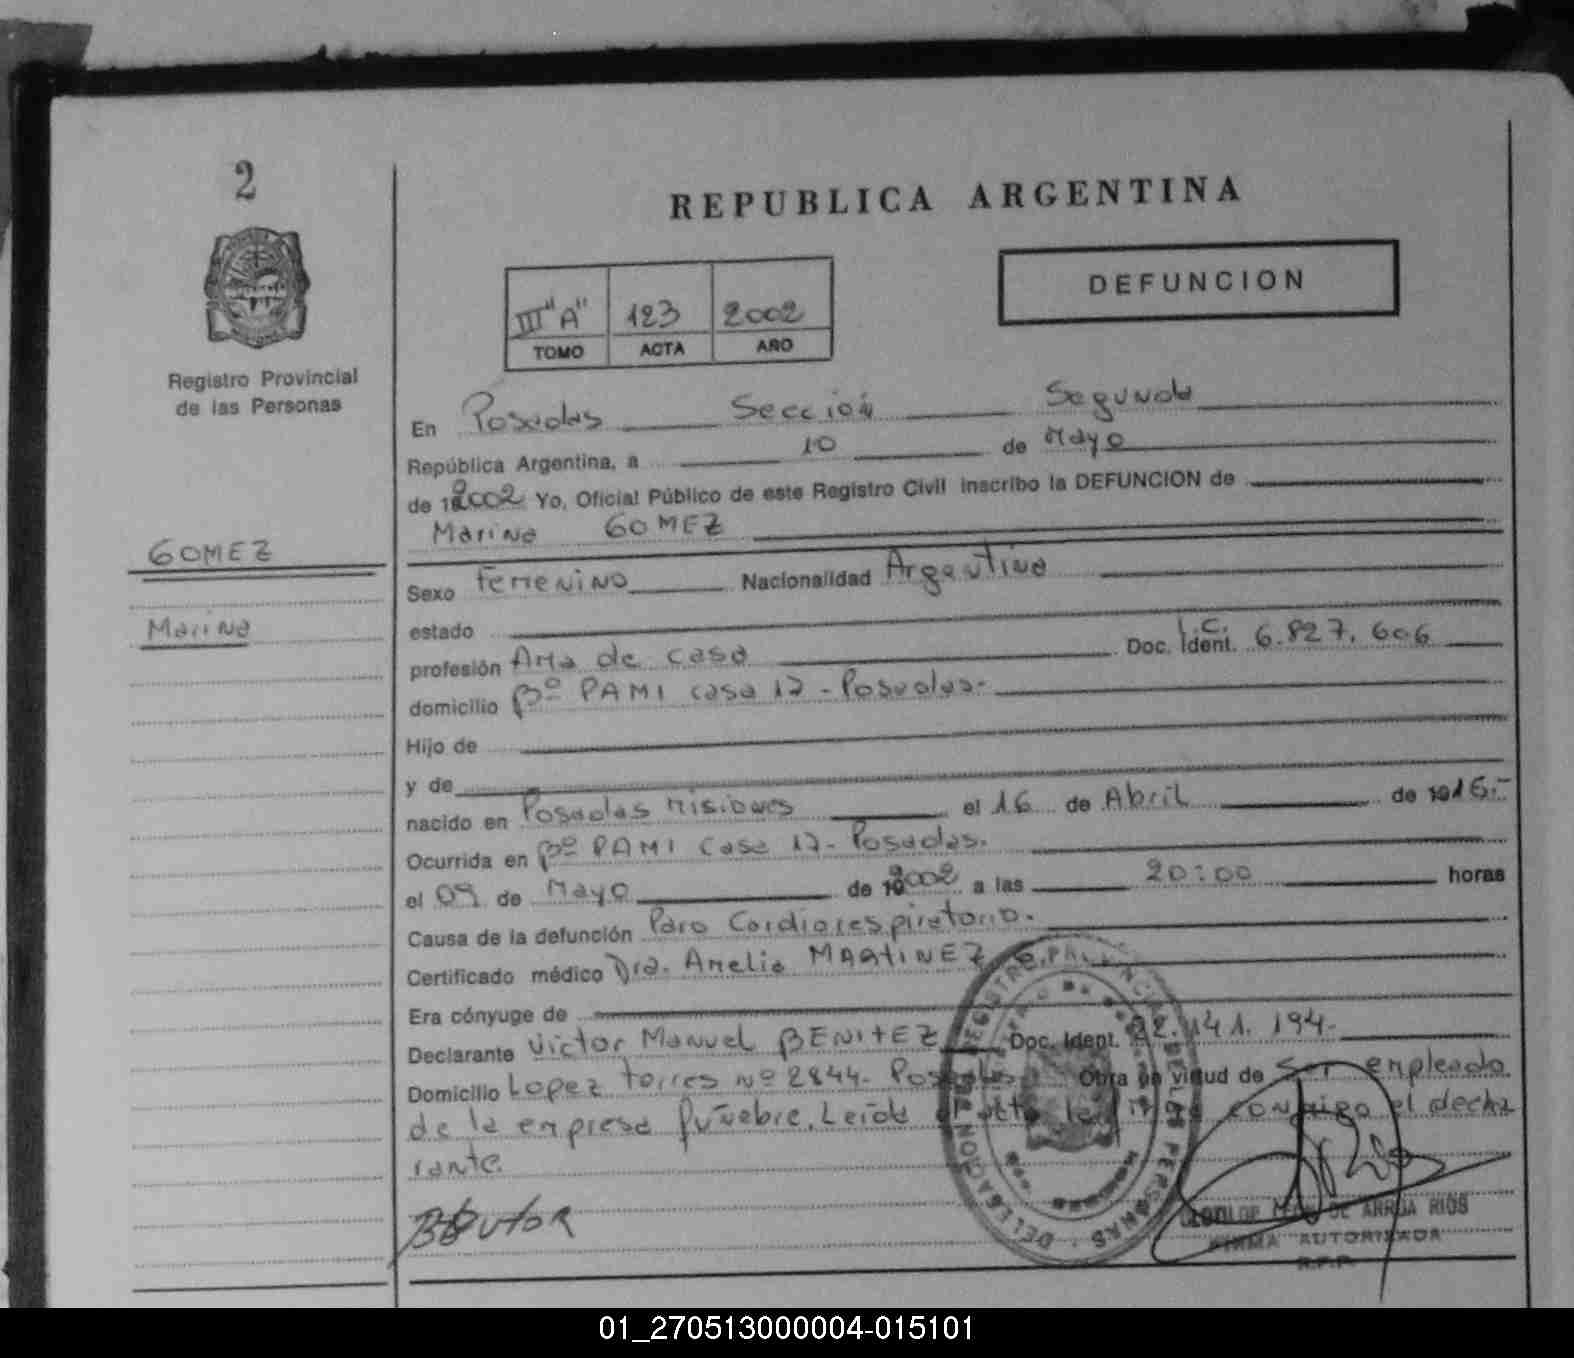 2
REPUBLICA ARGENTINA
DEFUNCION
III "A" 123 2002
TOMO ACTA AÑO
Registro Provincial
de las Personas
En Posadas Sección Segunda
República Argentina, a 10 de Mayo
de 2002 Yo, Oficial Público de este Registro Civil inscribo la DEFUNCION de
Marina GOMEZ
GOMEZ
Marina
Sexo Femenino Nacionalidad Argentina
estado
profesión Ama de casa Doc. Ident. L.C. 6.827.606
domicilio Bº PAMI casa 17 - Posadas-
Hijo de
y de
nacido en Posadas Misiones el 16 de Abril de 1916.-
Ocurrida en Bº PAMI Casa 17- Posadas.
el 09 de Mayo de 2002 a las 20:00 horas
Causa de la defunción Paro Cardiorespiratorio.
Certificado médico Dra. Amelia MARTINEZ
Era cónyuge de
Declarante Victor Manuel BENITEZ Doc. Ident. 22.141.194-
Domicilio Lopez Torres Nº 2844- Posadas Obra en virtud de Ser empleado
de la empresa fúnebre. Leída el acta la firma conmigo el decla
rante.
DELEGACION REGISTRO PROVINCIAL DE LAS PERSONAS
DE ARRUA RIOS
FIRMA AUTORIZADA
R.P.P.
01_270513000004-015101